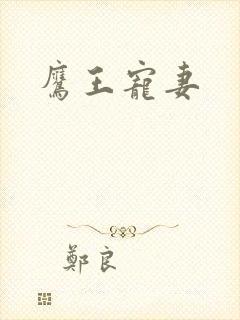 鷹王寵妻
鄭良